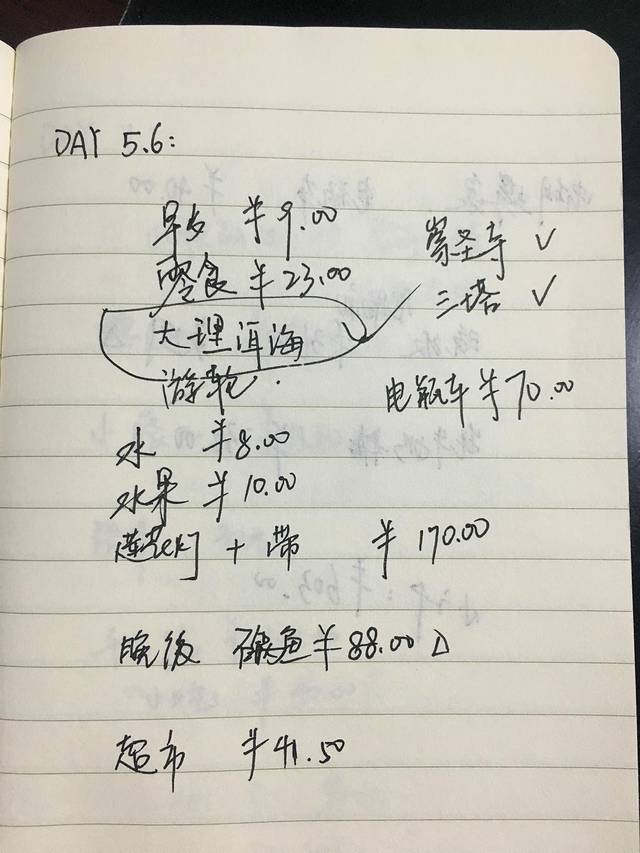 DAY 5.6:
早安 ¥9.00
零食 ¥23.00
大理洱海
游轮.
崇圣寺 ✓
三塔 ✓
电瓶车 ¥70.00
水 ¥8.00
水果 ¥10.00
+ 带 ¥170.00
晚 鱼 ¥88.00 Δ
超市 ¥41.50